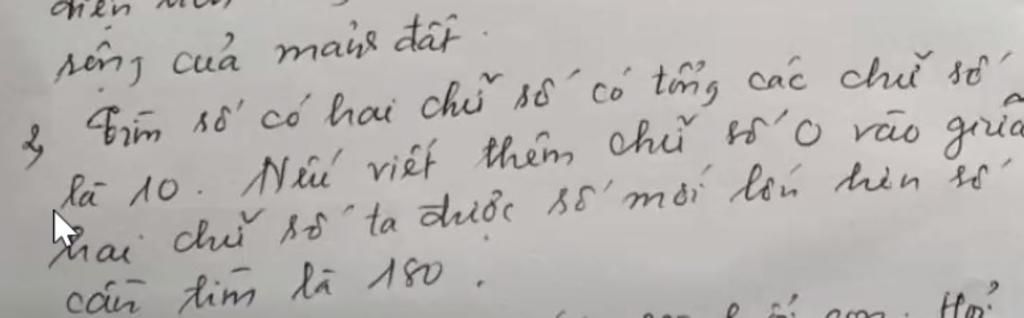 rộng của mảnh đất.
2, Tìm số có hai chữ số có tổng các chữ số
là 10. Nếu viết thêm chữ số 0 vào giữa
hai chữ số ta được số mới lớn hơn số
cần tìm là 180.